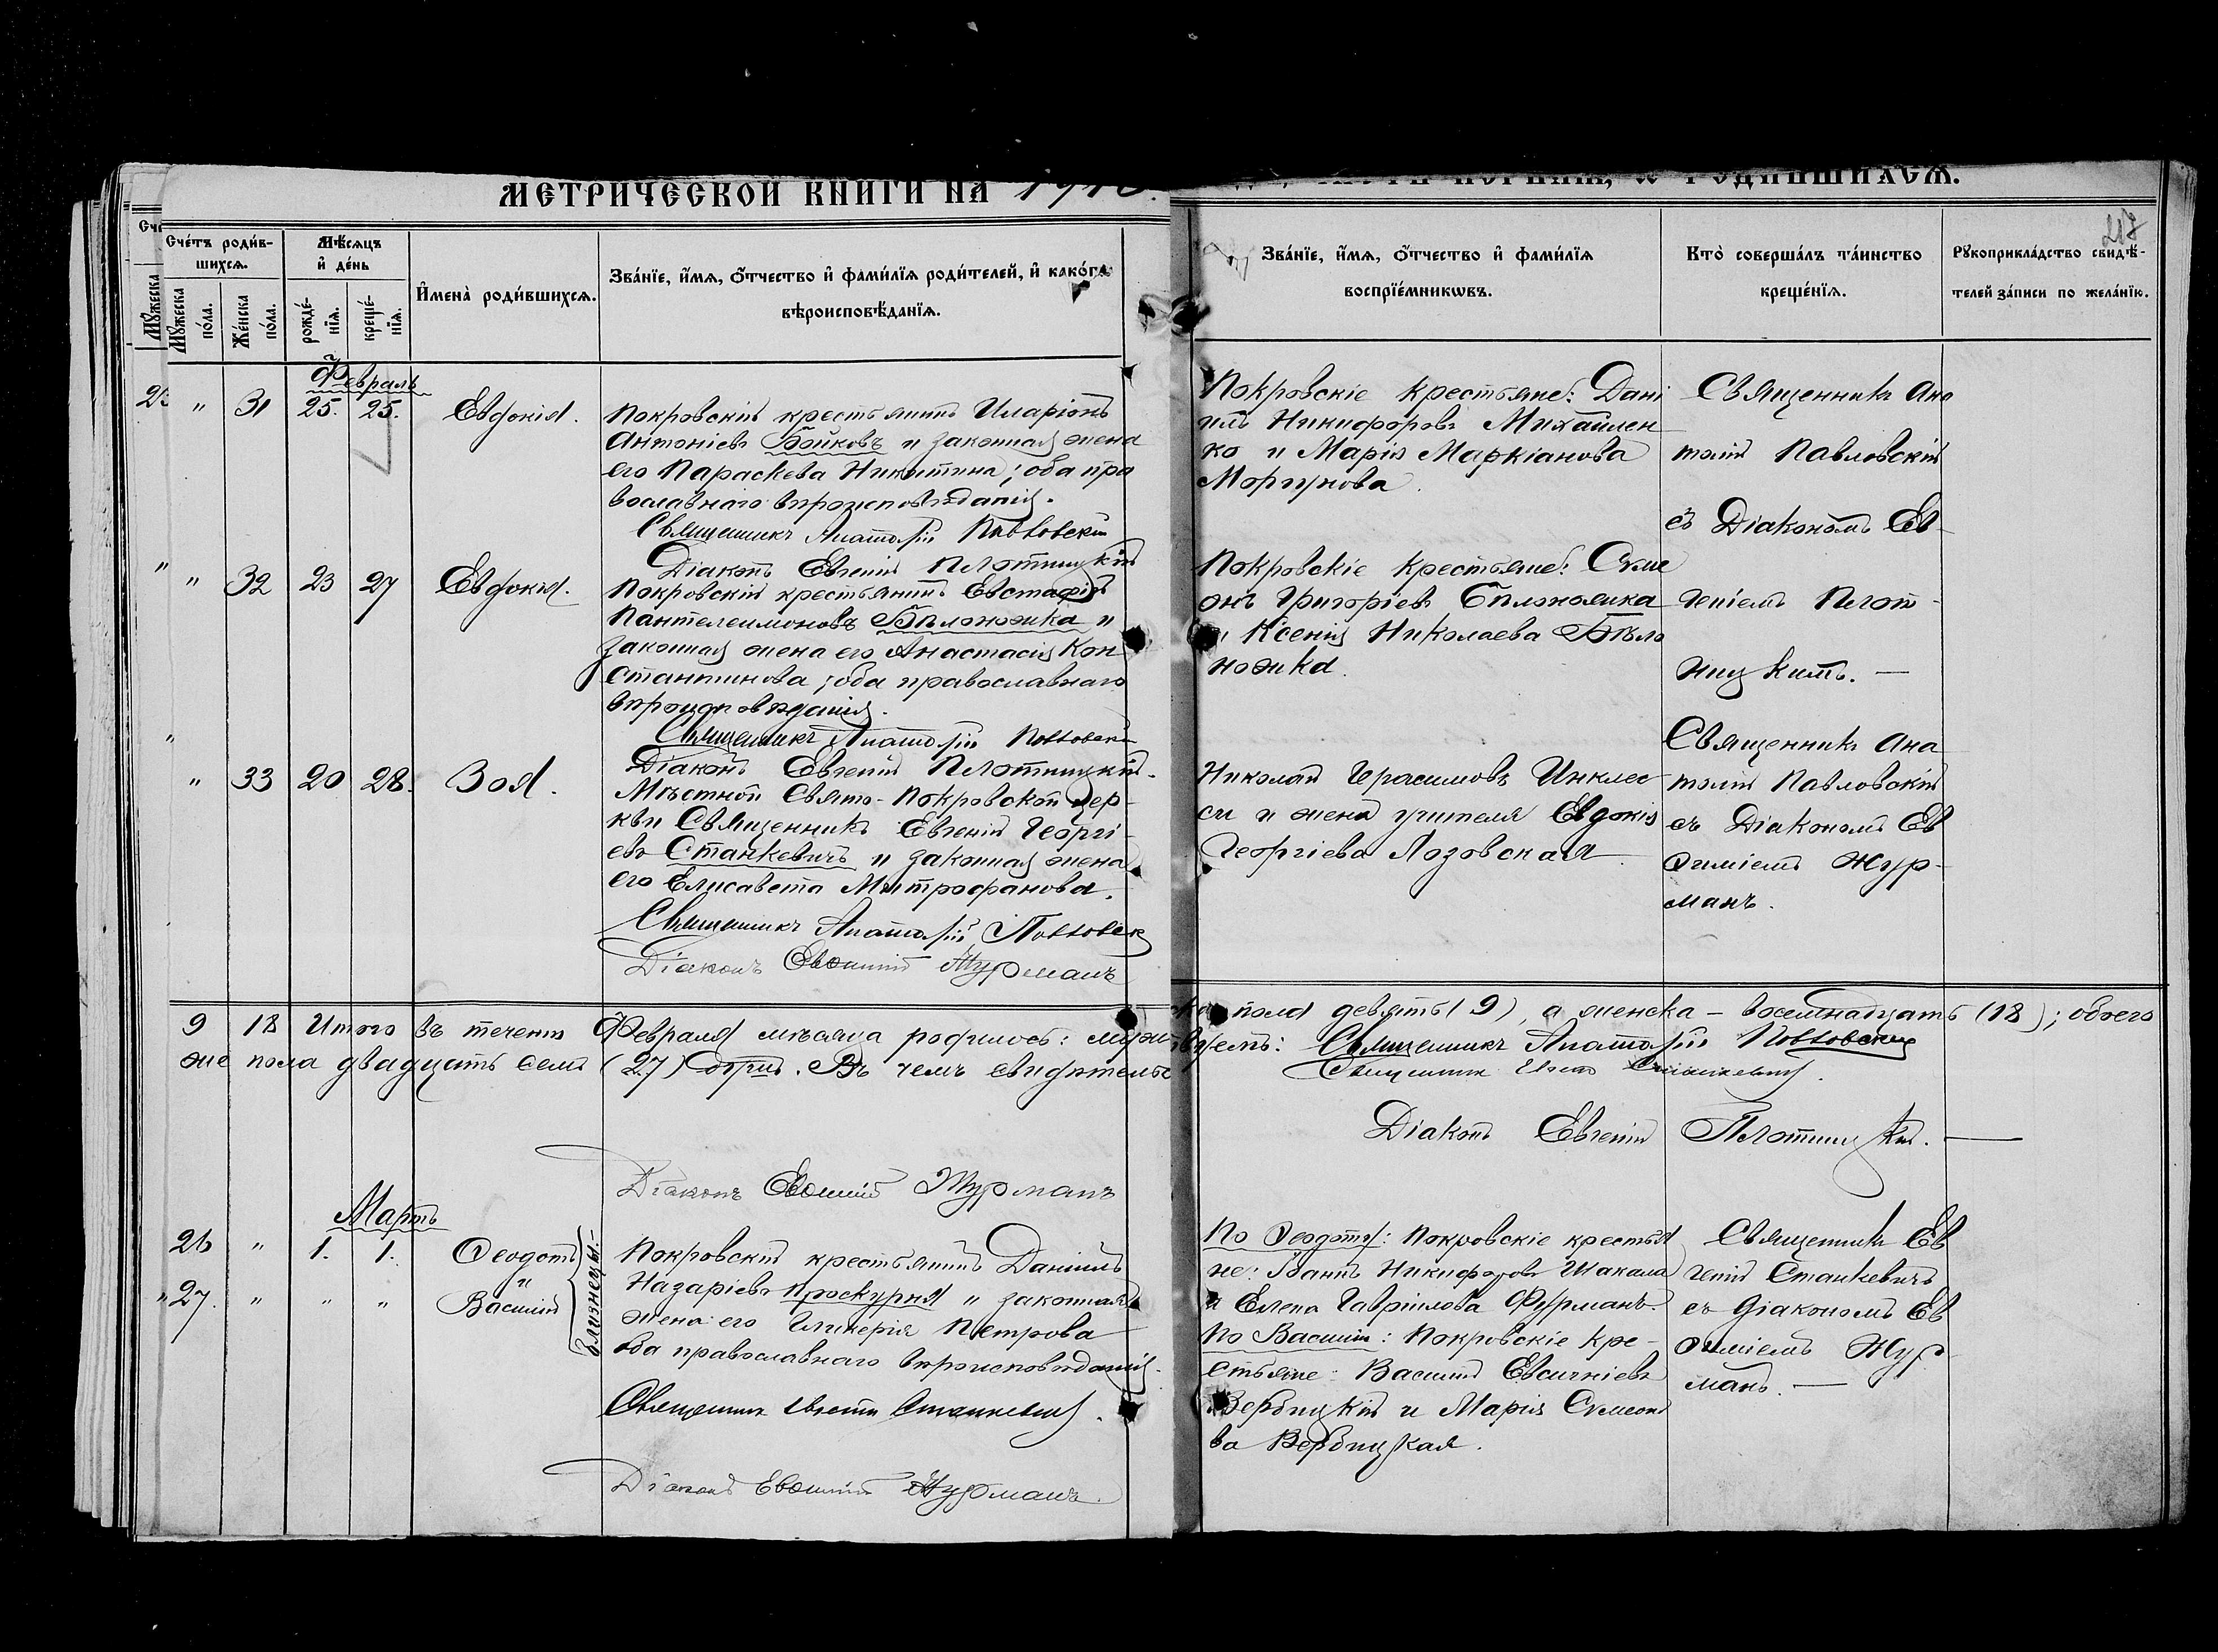 МЕТРИЧЕСКОЙ КНИГИ НА
РОДИВШИХСЯ.
Счетъ родив-
шихся.
Мужеска
пола.
Женска
пола.
Мѣсяцъ
и день
рожде-
нїя.
креще-
нїя.
Имена родившихся.
Званїе, имя, отчество и фамилїя родителей, и какогѡ
вѣроисповѣданїя.
Званїе, имя, отчество и фамилїя
воспрїемникѡвъ.
Кто совершалъ таинство
крещенїя.
Рукоприкладство свидѣ-
телей записи по желанїю.
Февраль
" 31 25. 25. Евдокія.
Покровскій крестьянинъ Иларіонъ
Антоніевъ Бойковъ и законная жена
его Параскева Никитина; оба пра
вославнаго вѣроисповѣданія.
Священникъ Анатолій Павловскій
Діаконъ Евгеній Плотницкій
Покровскіе крестьяне: Дані
илъ Никифоровъ Михайлен
ко и Марія Маркіанова
Моргунова.
Священникъ Ана
толій Павловскій
съ Діакономъ Ев-
геніемъ Плот-
ницкимъ. —
" 32 23 27 Евдокія.
Покровскій крестьянинъ Евстафій
Пантелеимоновъ Бѣлоножка и
законная жена его Анастасія Кон
стантинова; оба православнаго
вѣроисповѣданія.
Священникъ Анатолій Павловскій
Діаконъ Евгеній Плотницкій.
Покровскіе крестьяне: Симе
онъ Григоріевъ Бѣлоножка
и Ксенія Николаева Бѣло
ножка.
" 33 20 28. Зоя.
Мѣстной Свято-Покровской цер-
кви Священникъ Евгеній Георгі-
евъ Станкевичъ и законная жена
его Елисавета Митрофанова.
Священникъ Анатолій Павловск
Діаконъ Евѳимій Журманъ
Николай Герасимовъ
и жена учителя Евдокія
Георгіева Лозовская.
Священникъ Ана
толій Павловскій
съ Діакономъ Ев
ѳиміемъ Жур-
манъ.
9 18 Итого въ теченіе Февраля мѣсяца родилось: муж
пола девять (9), а женска – восемнадцать (18); обоего
же пола двадцать семь (27) душъ. Въ чемъ свидѣтельс
твуемъ: Священникъ Анатолій Павловскій
Священник Станкевичъ.
Діаконъ Евгеній Плотницкій. —
Діаконъ Евѳимій Журманъ
Мартъ
26 " 1. 1. Ѳеодотъ
и
27. " " " Василій
близнецы.
Покровскій крестьянинъ Даніилъ
Назаріевъ Проскурня и законная
жена его Гликерія Петрова
оба православнаго вѣроисповѣданія.
Священник Евгеній Станкевичъ.
Діаконъ Евѳимій Журманъ.
По Ѳеодоту: Покровскіе крестья
не: Іоаннъ Никифоровъ Шакала
и Елена Гавріилова Фурманъ.
По Василію: Покровскіе кре-
стьяне: Василій Евсигніевъ
Вербицкій и Марія Симеоно
ва Вербицкая.
Священникъ Ев
геній Станкевичъ
съ діакономъ Ев
ѳиміемъ Жур-
манъ. —